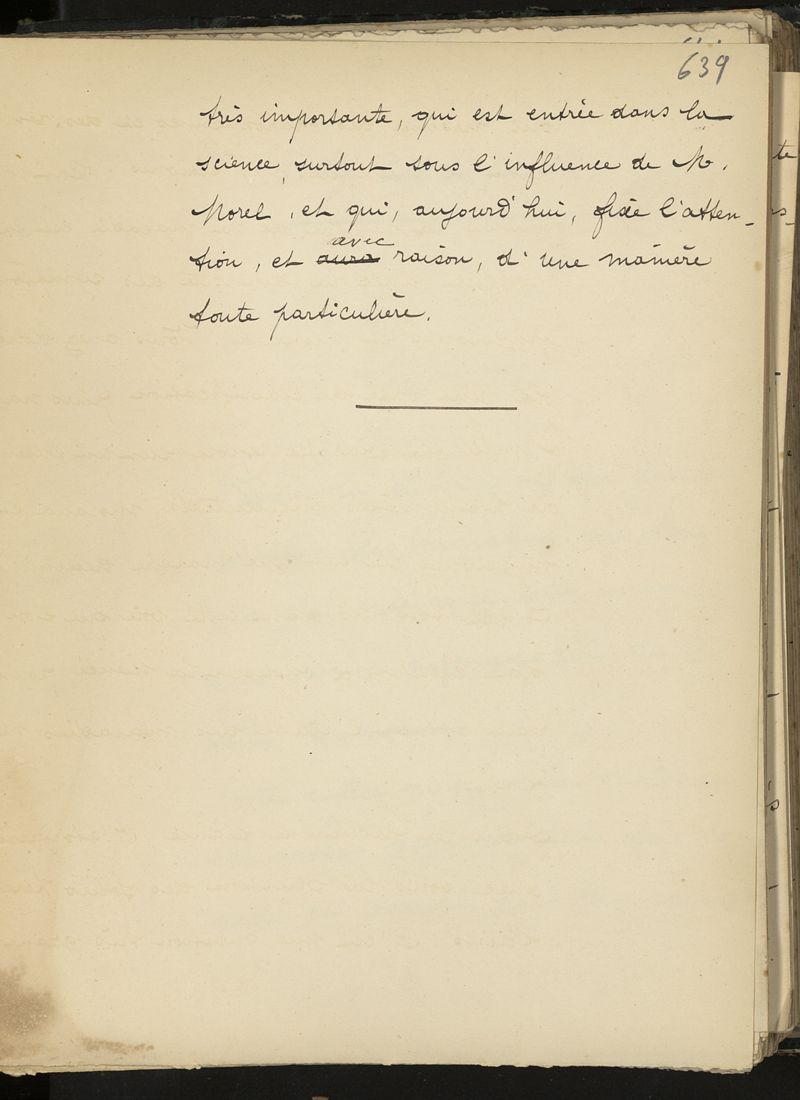 639
très importante, qui est entrée dans la
science, surtout sous l'influence de M.
Morel, et qui, aujourd'hui, fixe l'atten-
tion, et ~~aura~~ avec raison, d'une manière
toute particulière.